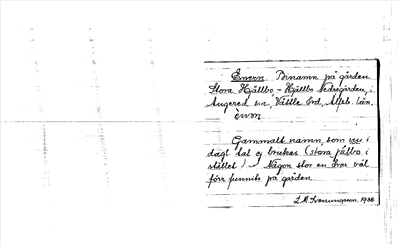 Enern Binamn på gården
Stora Hällbo, - Hällbo Nedregården, i
Angered sn, Vättle hd, Älfsb. län.
èṇon.
Gammalt namn, som nu i
dagl tal ej brukas (stora jälbo i
stället). Någon stor en har väl
förr funnits på gården.
1938